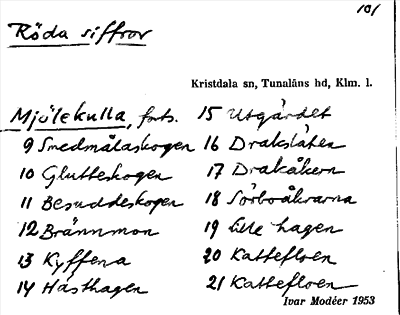 101
Röda siffror
Kristdala sn, Tunaläns hd, Klm. l.
Mjölekulla, forts.
9 Smedmålaskogen
10 Glutteskogen
11 Besuddeskogen
12 Brännmon
13 Kyffena
14 Hästhagen
15 Utgärdet
16 Drakslåten
17 Drakåkern
18 Sörboåkrarna
19 Lille hagen
20 Kattefloen
21 Kattefloen
Ivar Modéer 1953